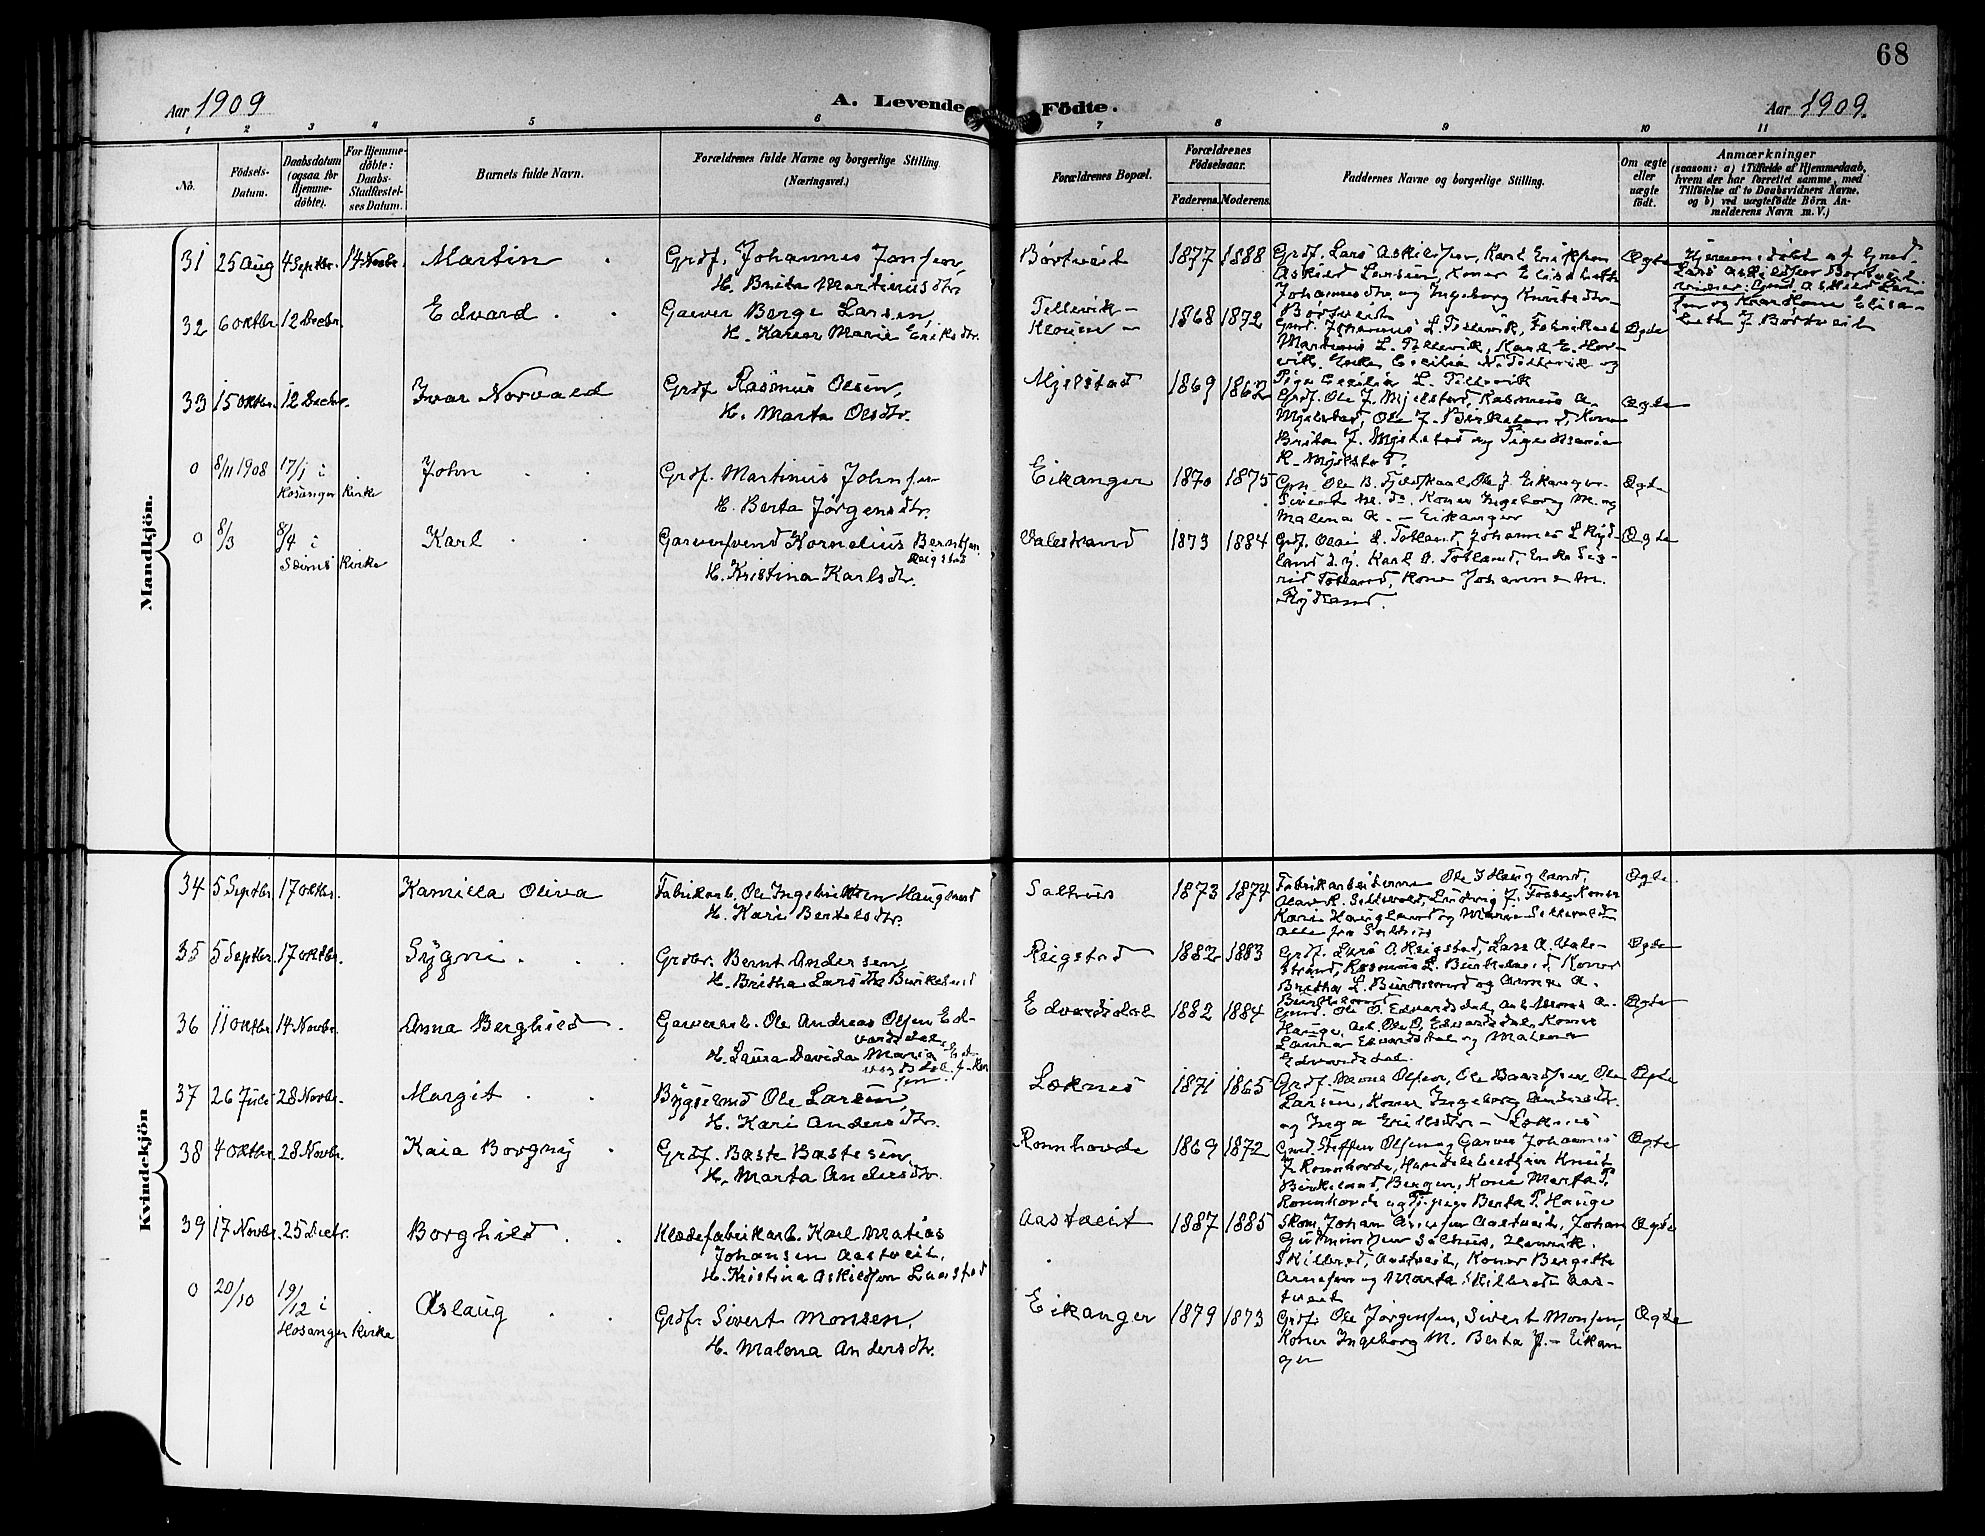 68
Aar 1909
A. Levende Födte.
Aar 1909.
1 2 3 4 5 6 7 8 9 10 11
No.
Födsels-
Datum.
Daabsdatum
(ogsaa for
Hjemme-
döbte).
For Hjemme-
döbte:
Daabs-
Stadfæstel-
ses Datum.
Barnets fulde Navn.
Forældrenes fulde Navne og borgerlige Stilling.
(Næringsvei.)
Forældrenes Bopæl.
Forældrenes
Födselsaar.
Faderens. Moderens.
Faddernes Navne og borgerlige Stilling.
Om ægte
eller
uægte
födt.
Anmærkninger
(saasom: a) i Tilfælde af Hjemmedaab,
hvem der har forrettet samme, med
Tilföielse af to Daabsvidners Navne,
og b) ved uægtefödte Börn An-
melderens Navn m. V.)
Mandkjön.
31 25 Aug 4 Septbr. 14 Novbr. Martin
Grdf. Johannes Jonsen,
H. Brita Martinusdtr.
Börtveit 1877 1888
Grdf. Lars Askildsen, Karl Eriksen
Askild Larsen, Koner Elisabeth
Johannesdtr. og Ingeborg Knutsdtr.
Börtveit
Ægte
Hjemmedöbt af Gmd.
Lars Askildsen Börtveit
vidner: Gmd. Askild Lar-
sen og Kone Elisa-
beth J. Börtveit
32 6 Oktbr. 12 Decbr. Edvard
Garver Berge Larsen,
H. Karen Marie Eriksdtr.
Tellevik-
Hounen- 1868 1872
Gmd. Johannes L. Tellevik, Fabrikarb
Martinus L. Tellevik, Karl E. Hor-
vik, Enke Cecilia N. Tellevik og
Pige Cecilia L. Tellevik
Ægte
33 15 Oktbr. 12 Decbr. Ivar Norvald
Grdf. Rasmus Olsen,
H. Marta Olsdtr.
Mjelstad 1869 1862
Grdf. Ole J. Mjelstad, Rasmus A.
Mjelstad, Ole J. Birkeland, Kone
Brita J. Mjelstad og Pige Maria
K. Mjelstad.
Ægte
0 8/11 1908 17/1 i
Hosanger Kirke
John
Grdf. Martinus Johnsen
H. Berta Jörgensdtr.
Eikanger 1870 1875
Grdf. Ole B. Fjeldskaal, Ole J. Eikanger.
Sivert M. do. Koner Ingeborg M. og
Malena A. - Eikanger
Ægte
0 8/3 8/4 i
Seims Kirke
Karl
Garversvend Kornelius Berntsen
Reigstad
H. Kristina Karlsdtr.
Valestrand 1873 1884
Grdf. Olai L. Totland, Johannes L Ryd-
land d.y. Karl A. Totland, Enke Sig-
rid Totland, Kone Johanne M.
Rydland.
Ægte
Kvindekjön
34 5 Septbr. 17 Oktbr. Kamilla Oliva
Fabrikarb. Ole Ingebriktsen Haugland
H. Kari Bertelsdtr.
Salhus 1873 1874
Fabrikarbeiderne Ole I Haugland,
Olav K. Sellevold, Ludvig J. Fosse, Koner
Kari Haugland og Marie Sellevold
alle fra Salhus
Ægte.
35 5 Septbr. 17 Oktbr. Sygni
Grdbr. Bernt Andersen,
H. Britha Larsdtr Birkeland
Reigstad 1882 1883
Grdf. Lars A. Reigstad, Lars A. Vale-
strand, Rasmus L. Birkeland, Koner
Britha L. Birkeland og Anna A.
Birkeland
Ægte
36 11 Oktbr. 14 Novbr. Anna Berghild
Garverarb. Ole Andreas Olsen Ed-
vardsdal,
H. Laura Davida Maria Ed-
vardsdal
Edvardsdal 1882 1884
Gmd. Ole O. Edvardsdal, Arb. Mons A.
Hauge, Arb. Ole O. Edvardsdal, Koner
Laura Edvardsdal og Malena
Edvardsdal.
Ægte
37 26 Juli 28 Novbr. Margit
Bygselmd Ole Larsen,
H. Kari Andersdtr.
Loknes 1871 1865
Grdf. Mons Olsen, Ole Baardsen, Ole
Larsen, Koner Ingeborg Andersdtr.
og Inga Eriksdtr - Loknes
Ægte
38 4 Oktbr. 28 Novbr. Kaia Borgny
Grdf. Baste Bastesen,
H. Marta Andersdtr.
Romnhovde 1869 1872
Gmd. Steffen Olsen og Garver Johannes
J. Romnhovde, Handelsbetjen Knut
Birkeland, Bergen, Kone Marta J.
Romnhovde og Tj.pige Berta P. Hauge
Ægte
39 17 Novbr. 25 Decbr. Borghild
Klædefabrikarb. Karl Matias
Johansen Aastveit,
H. Kristina Askildsen
Aastveit 1887 1885
Skom. Johan Arnesen Aastveit, Johan
Salhus, Henrik
Skillred, Aastveit, Koner Bergitte
Arnesen og Marta Skillred Aas-
tveit
Ægte
0 20/10 19/12 i
Hosanger Kirke
Aslaug
Grdf. Sivert Monsen,
H. Malena Andersdtr.
Eikanger 1879 1873
Grdf. Ole Jörgensen, Sivert Monsen,
Koner Ingeborg M. Berta J. - Eikan
ger
Ægte